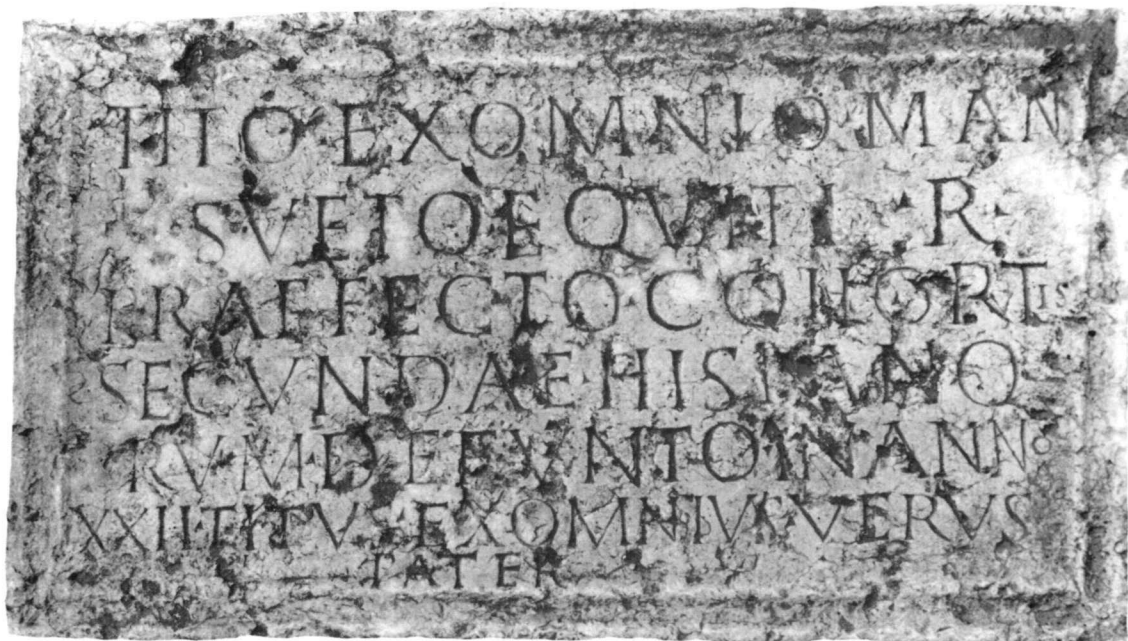 TITO EXOMNIO MAN
SVETO EQVITI · R ·
PRAEFECTO COHORTIS
SECVNDAE HISPANO
RVM DEFVNTO IN ANNO
XXII · TITVS EXOMNIVS VERVS
PATER